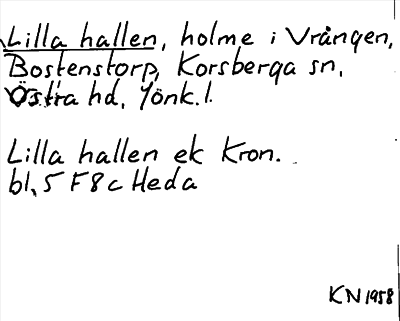 Lilla hallen, holme i Vrången,
Bostenstorp, Korsberga sn,
Östra hd, Jönk. l.
Lilla hallen ek Kron.
bl. 5 F 8 c Heda
KN 1958